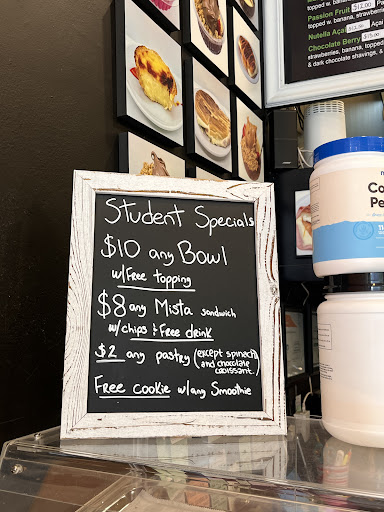 Student Specials
$10 any Bowl
w/Free topping
$8 any Mista sandwich
w/chips & Free drink
$2 any pastry (except spinach
and chocolate
croissant.)
Free cookie w/any Smoothie
topped w. banana, strawberries
Passion Fruit $12.00
topped w. banana,
Nutella Açaí
topped w. bana
Chocolate Berry $13.00
strawberries, banana, topped
& dark chocolate shavings, &
Co
Pe